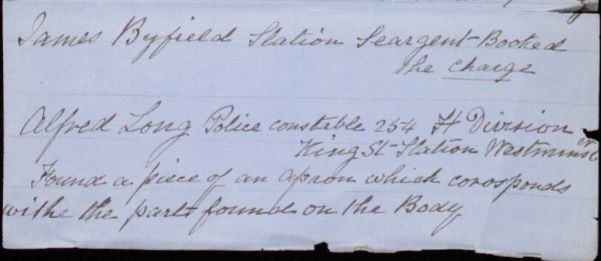 James Byfield Station Seargent Booked
the charge
Alfred Long Police constable 254 H Division
King St Station Westminster
Found a piece of an apron which corosponds
withe the part found on the Body